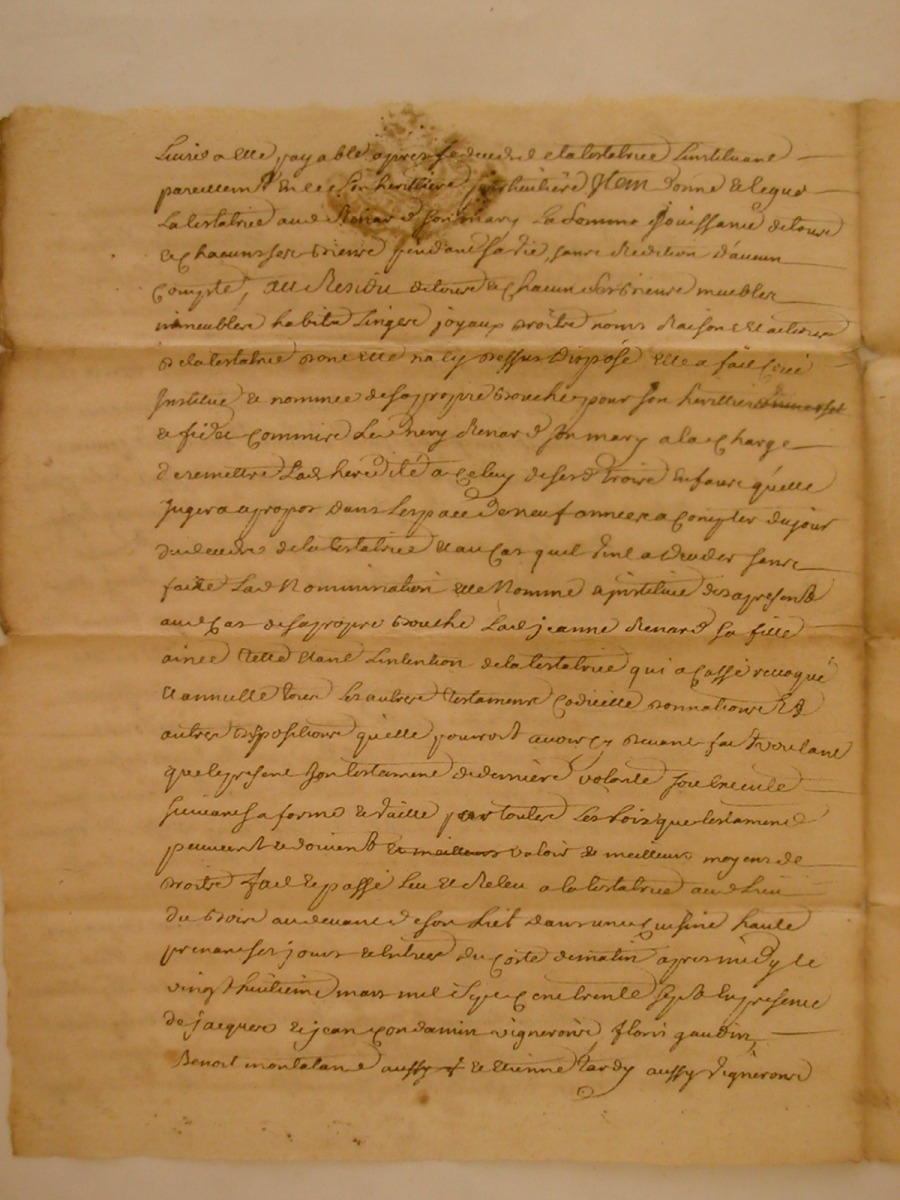 Livres a elle payable apres le deceds de la testatrice Linstituant
pareillement en ce son herittiere particuliere Item donne & legue
La testatrice aud Renard son mary La Somme Jouissance de tous
& chacuns ses biens pendant sa vie, sans Reddition d'aucun
Compte, Au Residu de tous & chacun ses biens meubles
immeubles habits Linges joyaux droits noms Raisons et actions
de la testatrice dont elle na cy dessus disposé elle a fait Creé
Institue & nommée de sa propre bouche pour son herittier
& fidei Commire Led Renard son mary a la Charge
de remettre Lad heredité a celuy de sesd trois Enfans quelle
Jugera apropos dans Lespace de neuf années a Compter du jour
du deceds de la testatrice et au Cas quil vint a deceder sans
faire Lad Nomination elle Nomme & institue des apresent
aud Cas de sa propre bouche Lad jeanne Renard sa fille
ainée telle etant Lintention de la testatrice qui a Cassé revoqué
et annullé tous Les autres testaments Codicille donnations et
autres dispositions quelle pourroit avoir cy devant fait voulant
que le present son testament de derniere volonté soit execute
suivant sa forme & vaille par toutes Les Lois que testament
peuvent & doivent valoir & meilleurs moyens de
droits fait & passé Leu et Releu a la testatrice aud Lieu
du bois au devant de son Liet dans une Cuisine haute
prenant ses jours & entrées du Costé de matin apres midy le
vingt huitieme mars mil Sept Cent trente sept En presence
de jacques & jean Condamin vignerons, floris gaudin,
Benoit montaland aussy & etienne tardy aussy vignerons